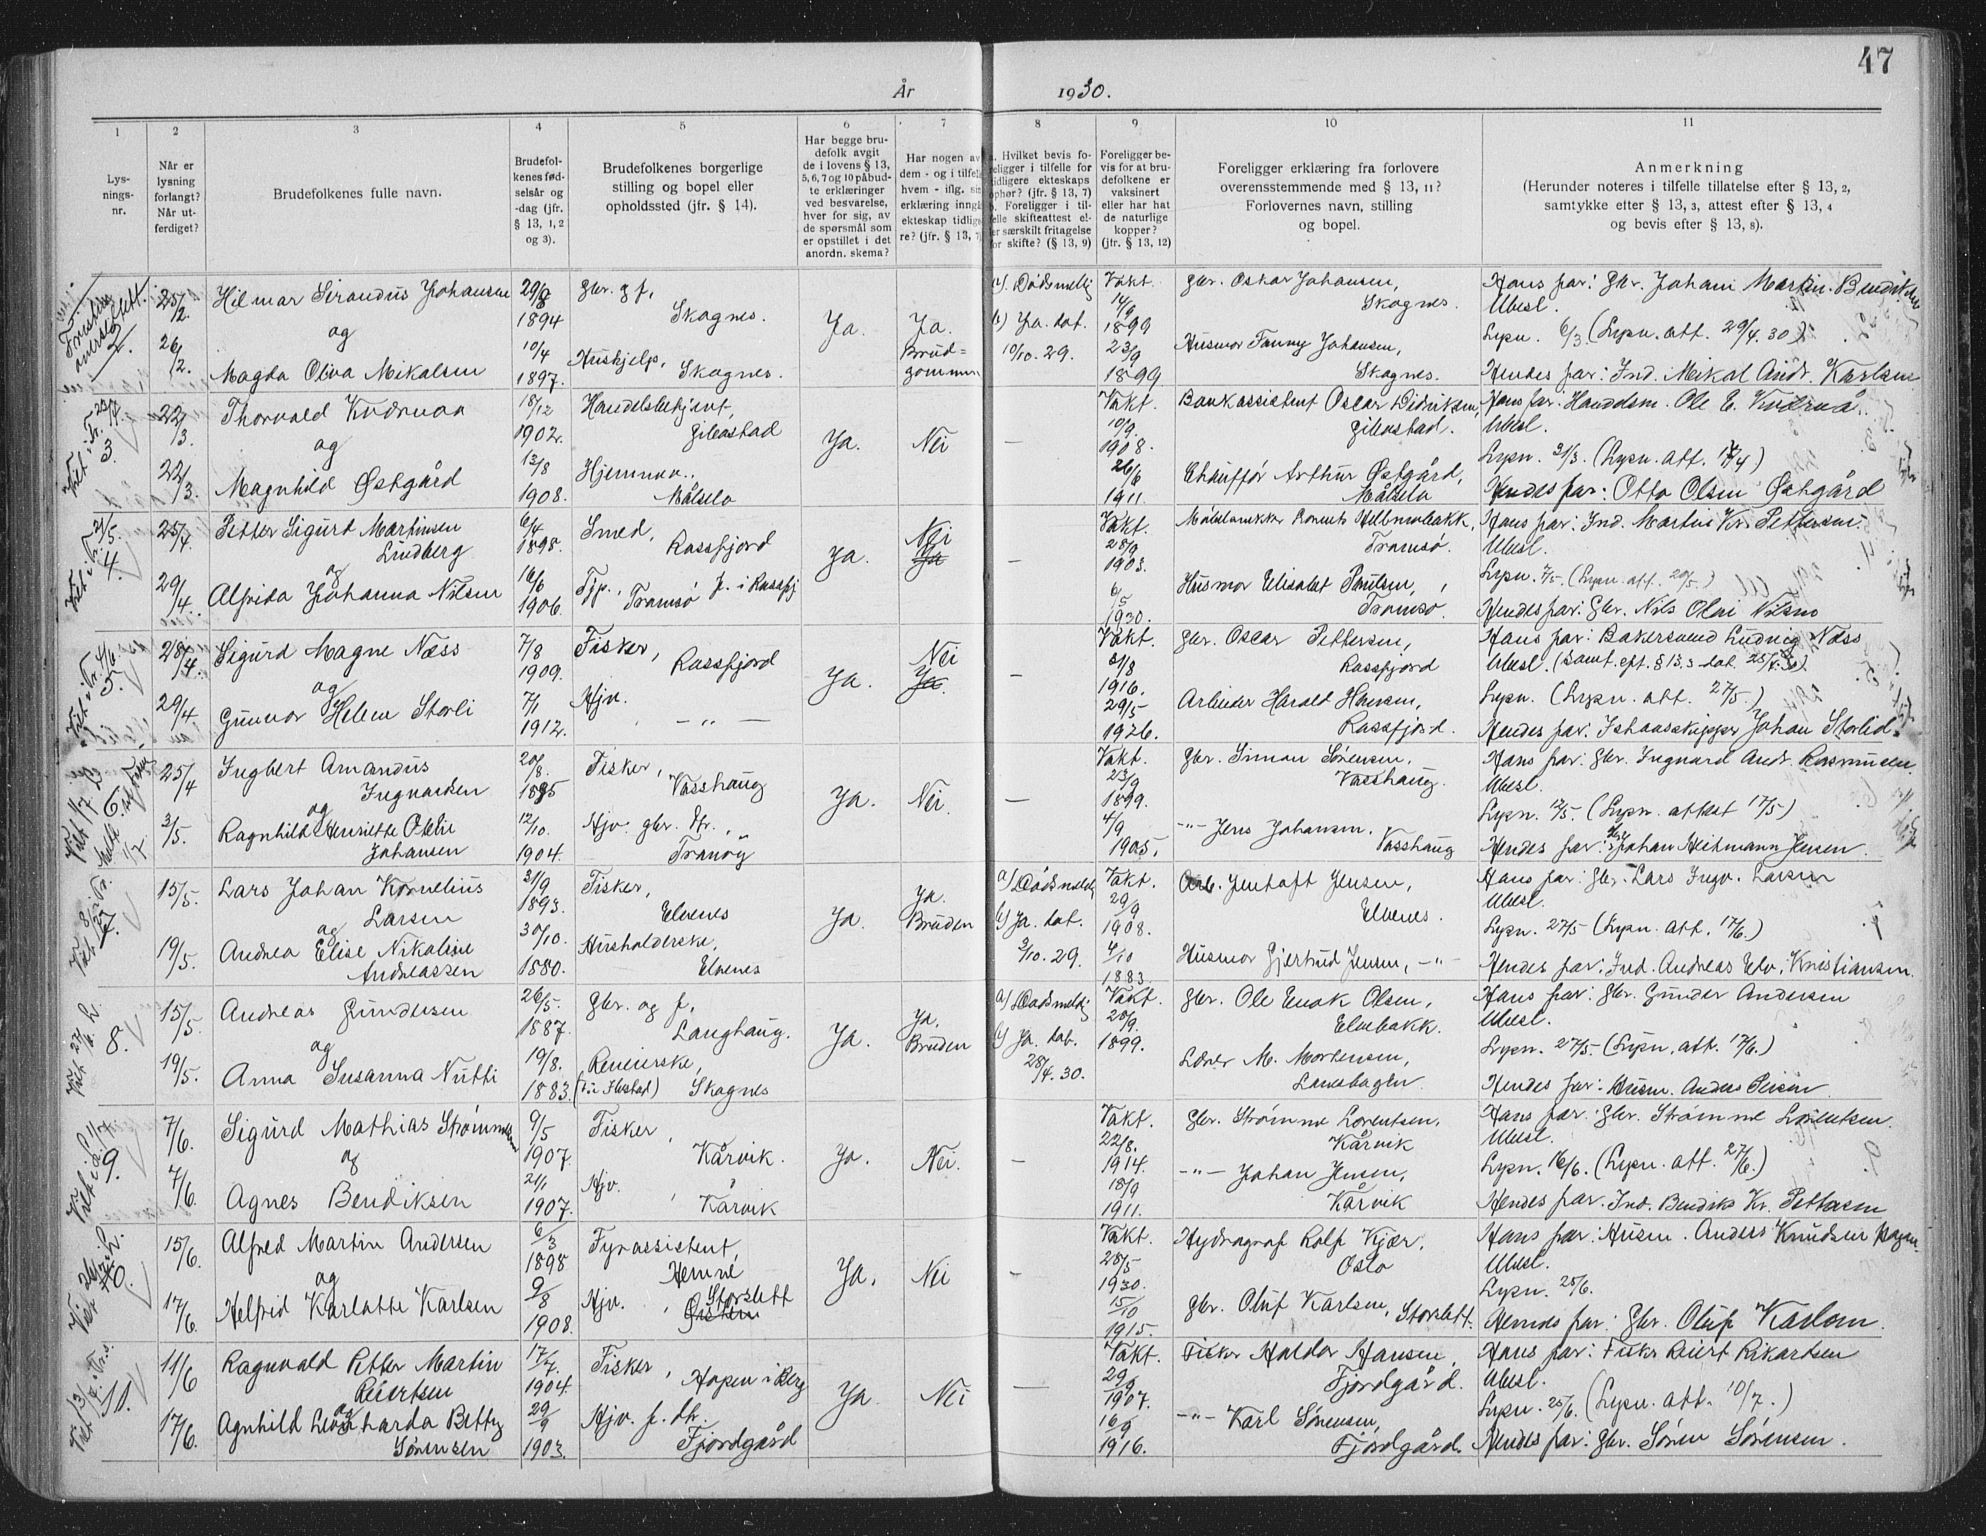 47
År 1930.
1
Lys-
nings-
nr.
2
Når er
lysning
forlangt?
Når ut-
ferdiget?
3
Brudefolkenes fulle navn.
4
Brudefol-
kenes fød-
selsår og
-dag (jfr.
§ 13, 1, 2
og 3).
5
Brudefolkenes borgerlige
stilling og bopel eller
opholdssted (jfr. § 14).
6
Har begge bru-
defolk avgit
de i lovens § 13,
5, 6, 7 og 10 påbud-
te erklæringer
ved besvarelse,
hver for sig, av
de spørsmål som
er opstillet i det
anordn. skema?
7
Har nogen av
dem - og i tilfelle
hvem - iflg.
erklæring inngå
ekteskap tidlige
re? (jfr. § 13, 7)
8
a. Hvilket bevis fo-
religger i tilfelle for
tidligere ekteskaps
ophør? (jfr. § 13, 7)
b. Foreligger i til-
felle skifteattest el-
er særskilt fritagelse
for skifte? (§ 13, 9)
9
Foreligger be-
vis for at bru-
defolkene er
vaksinert
eller har hat
de naturlige
kopper?
(jfr. § 13, 12)
10
Foreligger erklæring fra forlovere
overensstemmende med § 13, 11?
Forlovernes navn, stilling
og bopel.
11
Anmerkning
(Herunder noteres i tilfelle tillatelse efter § 13, 2,
samtykke efter § 13, 3, attest efter § 13, 4
og bevis efter § 13, 8).
2.
25/2.
26/2.
Hilmar Sirandus Johansen
og
Magda Oliva Mikalsen
29/8
1894
10/4
1897.
gbr. g f,
Skognes.
Hushjelp,
Skognes.
Ja.
Ja.
Brud=
gommen
a). Dødsmeldg
b) Ja. dat.
10/10. 29.
Vakt.
14/9
1899
23/9
1899
gbr. Oskar Johansen,
Skognes.
Husmor Fanny Johansen,
Skognes.
Hans far: Gbr. Johan Martin Bendiksen
Ubesl.
Lysn. 6/3. (Lysn. att. 29/4. 30)
Hendes far: Ind. Mikal Andr. Karlsen
3.
22/3.
22/3.
Thorvald Kværnaa
og
Magnhild Østgård
18/12
1902.
13/8
1908.
Handelsbetjent,
Gibostad
Hjemmev..
Målselv
Ja.
Nei
—
Vakt.
10/9
1908.
26/6
1911.
Bankassistent Oscar Didriksen,
Gibostad.
Chauffør Arthur Østgård,
Målselv
Hans far: Handelsm. Ole E. Kværnå.
Ubesl.
Lysn. 31/3. (Lysn. att. 12/4)
Hendes far: Otto Olsen Østgård
4.
25/4.
29/4.
Petter Sigurd Martinsen
Lindberg
og
Alfrida Johanna Nilsen
6/4
1898.
16/6
1906.
Smed,
Rossfjord
Tjp., Tromsø f. i Rossfj
Ja.
Nei
Ja
—
Vakt.
28/9
1903.
6/5
1930.
Tromsø.
Husmor Elisabet Paulsen,
Tromsø.
Hans far: Ind. Martin Kr. Pettersen.
Ubesl.
Lysn. 7/5. (Lysn. att. 20/5.)
Hendes far: Gbr. Nils Olai Nilsen
5.
28/4.
29/4.
Sigurd Magne Næss
og
Gunvor Helene Storli
7/8
1909.
7/1
1912.
Fisker,
Rossfjord
Hjv.
— " —
Ja.
Nei
Ja.
—
Vakt.
31/8
1916.
29/5
1926.
Gbr. Oscar Pettersen,
Rossfjord
Arbeider Harald Hansen,
Rossfjord.
Hans far: Bakersvend Ludvig Næss
Ubesl. (Samt. eft. § 13.3 dat. 25/4.30).
Lysn. (Lysn. att. 27/5.)
Hendes far: Ishavsskipper Johan Storlid.
6.
25/4
3/5.
Ingbert Amandus
Ingvardsen
og
Ragnhild Henriette Otelie
Johansen
20/8.
1895
12/10.
1904.
Fisker,
Vasshaug
Hjv. gbr. dtr.,
Tranøy
Ja.
Nei.
—
Vakt.
23/9
1899.
4/9
1905.
gbr. Simon Sørensen,
Vasshaug.
-"- Jens Johansen.
Vasshaug
Hans far: gbr. Ingvard Andr. Rasmussen.
Ubesl.
Lysn. 12/5. (Lysn. attest 17/5)
Hendes far: gbr. Johan Heitmann Jensen.
7.
15/5.
19/5.
Lars Johan Kornelius
Larsen
og
Andrea Elise Nikoline
Andreassen
31/9
1893.
30/10.
1880.
Fisker,
Elvenes
Husholderske,
Elvenes
Ja.
Ja.
Bruden
a) Dødsmeldg
b) Ja. dat.
3/10. 29.
Vakt.
29/9
1908.
4/10
1883
Arb. Jentoft Jensen,
Elvenes.
Husmor Gjertrud Jensen, -"-
Hans far: gbr. Lars Ingv. Larsen
Ubesl.
Lysn. 27/5 (Lysn. att. 17/6.)
Hendes far: Ind. Andreas Edv. Kristiansen.
8.
15/5.
19/5.
Andreas Gundersen
og
Anna Susanna Nutti
26/5.
1887.
19/8.
1883.
gbr. og f,
Langhaug.
Reveierske,
Skognes
Ja.
Ja.
Bruden
a) Dødsmeldg
b) Ja. dat.
28/4. 30.
Vakt.
28/9.
1899.
gbr. Ole Enok Olsen,
Elvebakk.
Lærer M. Mortensen,
Hans far: gbr. Gunder Andersen
Ubesl.
Lysn. 27/5. (Lysn. att. 17/6.)
Hendes far: Husm. Anders
9.
7/6.
7/6.
Sigurd Mathias
og
Agnes Bendiksen
9/5
1907.
21/1
1907.
Fisker,
Kårvik.
Hjv.,
Kårvik
Ja.
Nei.
—
Vakt.
22/8.
1914.
18/9
1911.
Gbr. Strømme Lorentsen,
Kårvik
-"- Johan Jensen,
Kårvik
Hans far: gbr. Strømme Lorentsen.
Ubesl.
Lysn. 16/6. (Lysn. att. 27/6.)
Hendes far. Ind. Bendiks Kr. Pettersen
10.
15/6.
17/6.
Alfred Martin Andersen
og
Helfrid Karlotte Karlsen
6/3
1898
9/8
1908.
Fyrassistent,
Hemne
Hjv., Storslett
Ja.
Nei
-
Vakt.
28/5
1930.
15/10
1915.
Hydrograf Rolf Kjær,
Oslo
gbr. Oluf Karlsen, Storslett.
Hans far: Husm. Anders Knudsen
Ubesl.
Lysn. 25/6.
Hendes far: Gbr. Oluf Karlsen.
11.
11/6
17/6.
Ragnvald Petter Martin
Reiertsen
og
Agnhild Leonharda Betty
Sørensen
17/4.
1904.
29/9
1903.
Fisker,
Hopen i Berg
Hjv. f. dtr.
Fjordgård
Ja.
Nei
—
Vakt.
29/9
1907.
16/9
1916.
Fisker Haldor Hansen,
Fjordgård.
-"- Karl Sørensen,
Fjordgård.
Hans far: Fisker Reiert Rikartsen
Ubesl.
Lysn. 25/6. (Lysn. att. 10/7.)
Hendes far: gbr. Søren Sørensen.